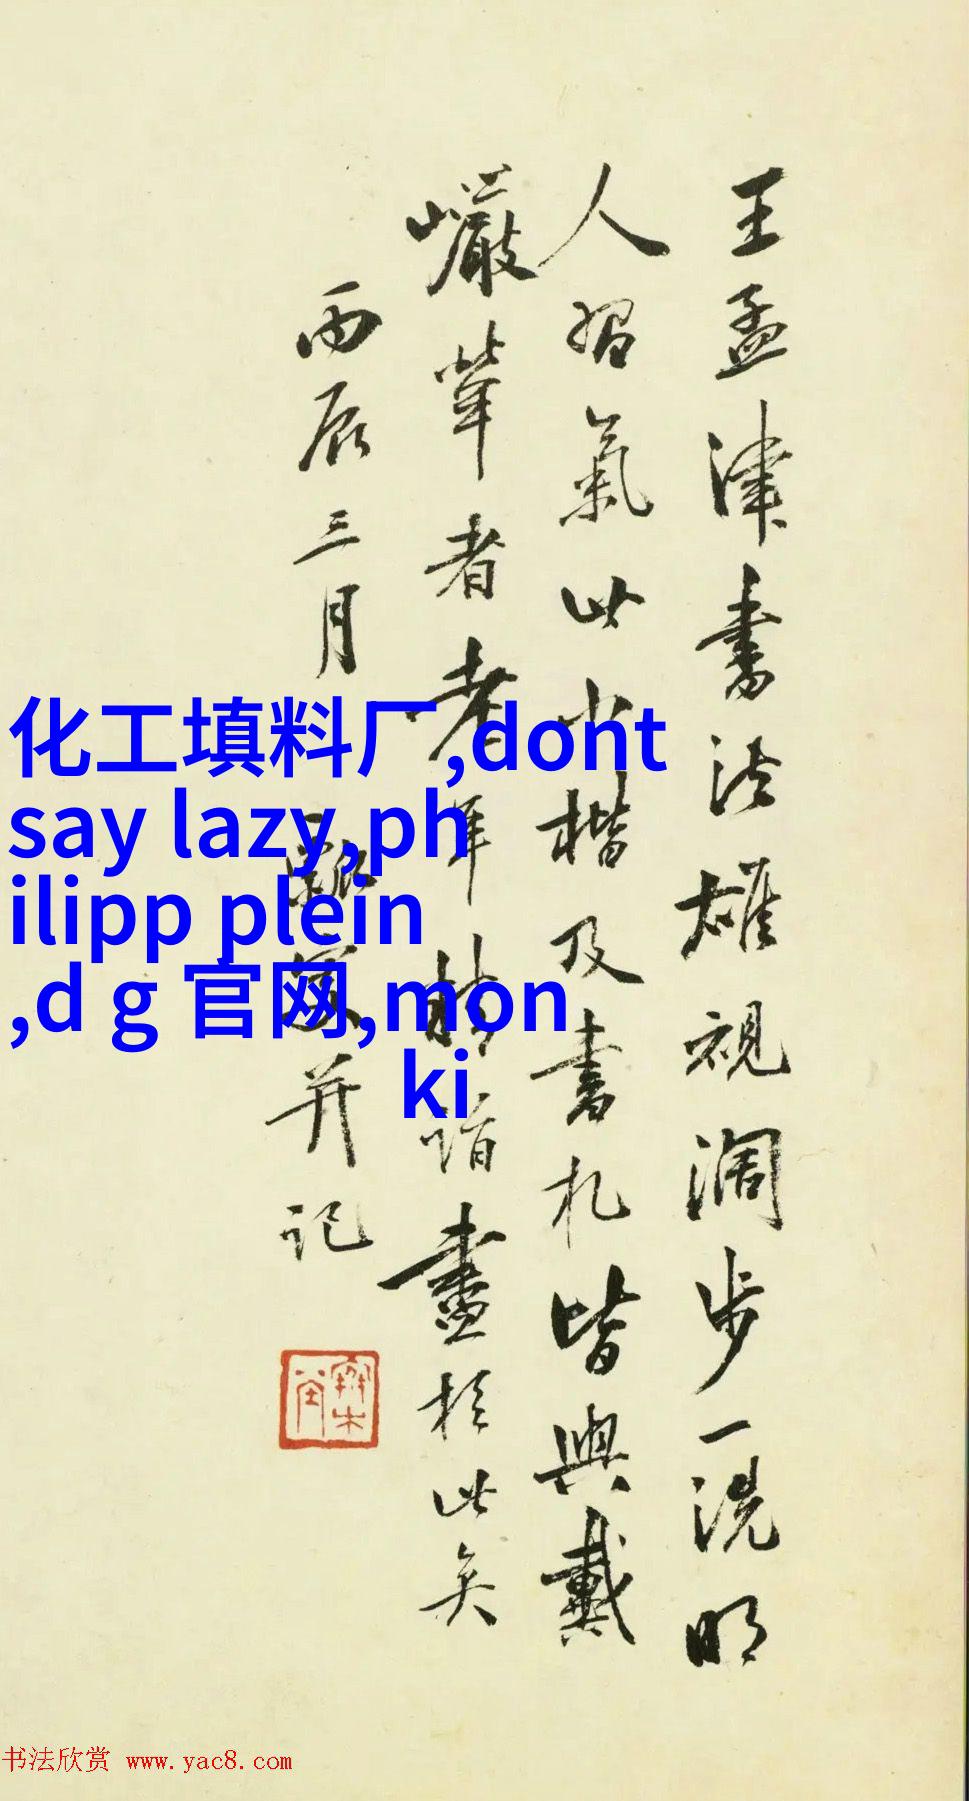 王孟津書法雄視闊步一洗明
人習氣此小楷及書札皆與戴
巖犖者老年精詣盡於此矣
丙辰三月
并記
化工填料厂,dont
say lazy,ph
ilipp plein
,d g 官网,mon
ki
书法欣赏 www.yac8.com